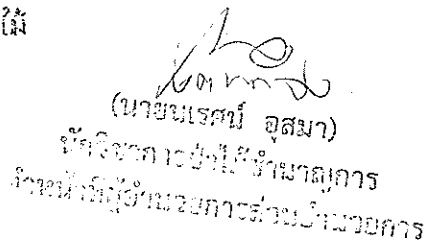 (นายนเรศน์ อุสมา)
นักวิชาการป่าไม้ชำนาญการ
ทำหน้าที่ผู้อำนวยการส่วนอำนวยการ